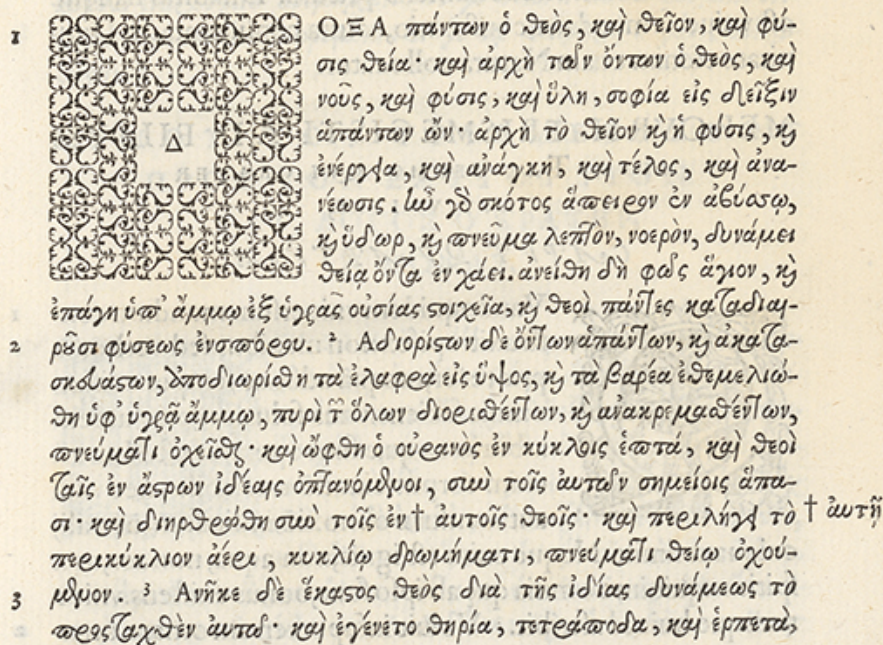 1 ΔΟΞΑ πάντων ὁ θεὸς, καὶ θεῖον, καὶ φύ-
σις θεία· καὶ ἀρχὴ τῶν ὄντων ὁ θεὸς, καὶ
νοῦς, καὶ φύσις, καὶ ὕλη, σοφία εἰς δεῖξιν
ἁπάντων ὤν· ἀρχὴ τὸ θεῖον καὶ ἡ φύσις, καὶ
ἐνέργεια, καὶ ἀνάγκη, καὶ τέλος, καὶ ἀνα-
νέωσις. ἦν γὸ σκότος ἄπειρον ἐν ἀβύσσῳ,
καὶ ὕδωρ, καὶ πνεῦμα λεπτὸν, νοερὸν, δυνάμει
θείᾳ ὄντα ἐν χάει. ἀνείθη δὴ φῶς ἅγιον, καὶ
ἐπάγη ὑπ' ἄμμῳ ἐξ ὑγρᾶς οὐσίας στοιχεῖα, καὶ θεοὶ πάντες καταδιαι-
2 ροῦσι φύσεως ἐνσπόρου. ² Αδιορίστων δὲ ὄντων ἁπάντων, καὶ ἀκατα-
σκευάστων, ἀποδιωρίσθη τὰ ἐλαφρὰ εἰς ὕψος, καὶ τὰ βαρέα ἐθεμελιώ-
θη ὑφ' ὑγρᾷ ἄμμῳ, πυρὶ τῶν ὅλων διορισθέντων, καὶ ἀνακρεμασθέντων,
πνεύματι ὀχεῖσθαι· καὶ ὤφθη ὁ οὐρανὸς ἐν κύκλοις ἑπτά, καὶ θεοὶ
ταῖς ἐν ἄστρων ἰδέαις ὀπτανόμενοι, σὺν τοῖς αὐτῶν σημείοις ἅπα-
σι· καὶ διηρθρώθη σὺν τοῖς ἐν † αὐτοῖς θεοῖς· καὶ περιλήγει τὸ † αὐτῇ
περικύκλιον ἀέρι, κυκλίῳ δρωμήματι, πνεύματι θείῳ ὀχού-
3 μενον. ³ Ανῆκε δὲ ἕκαστος θεὸς διὰ τῆς ἰδίας δυνάμεως τὸ
προσταχθὲν αὐτῷ· καὶ ἐγένετο θηρία, τετράποδα, καὶ ἑρπετὰ,